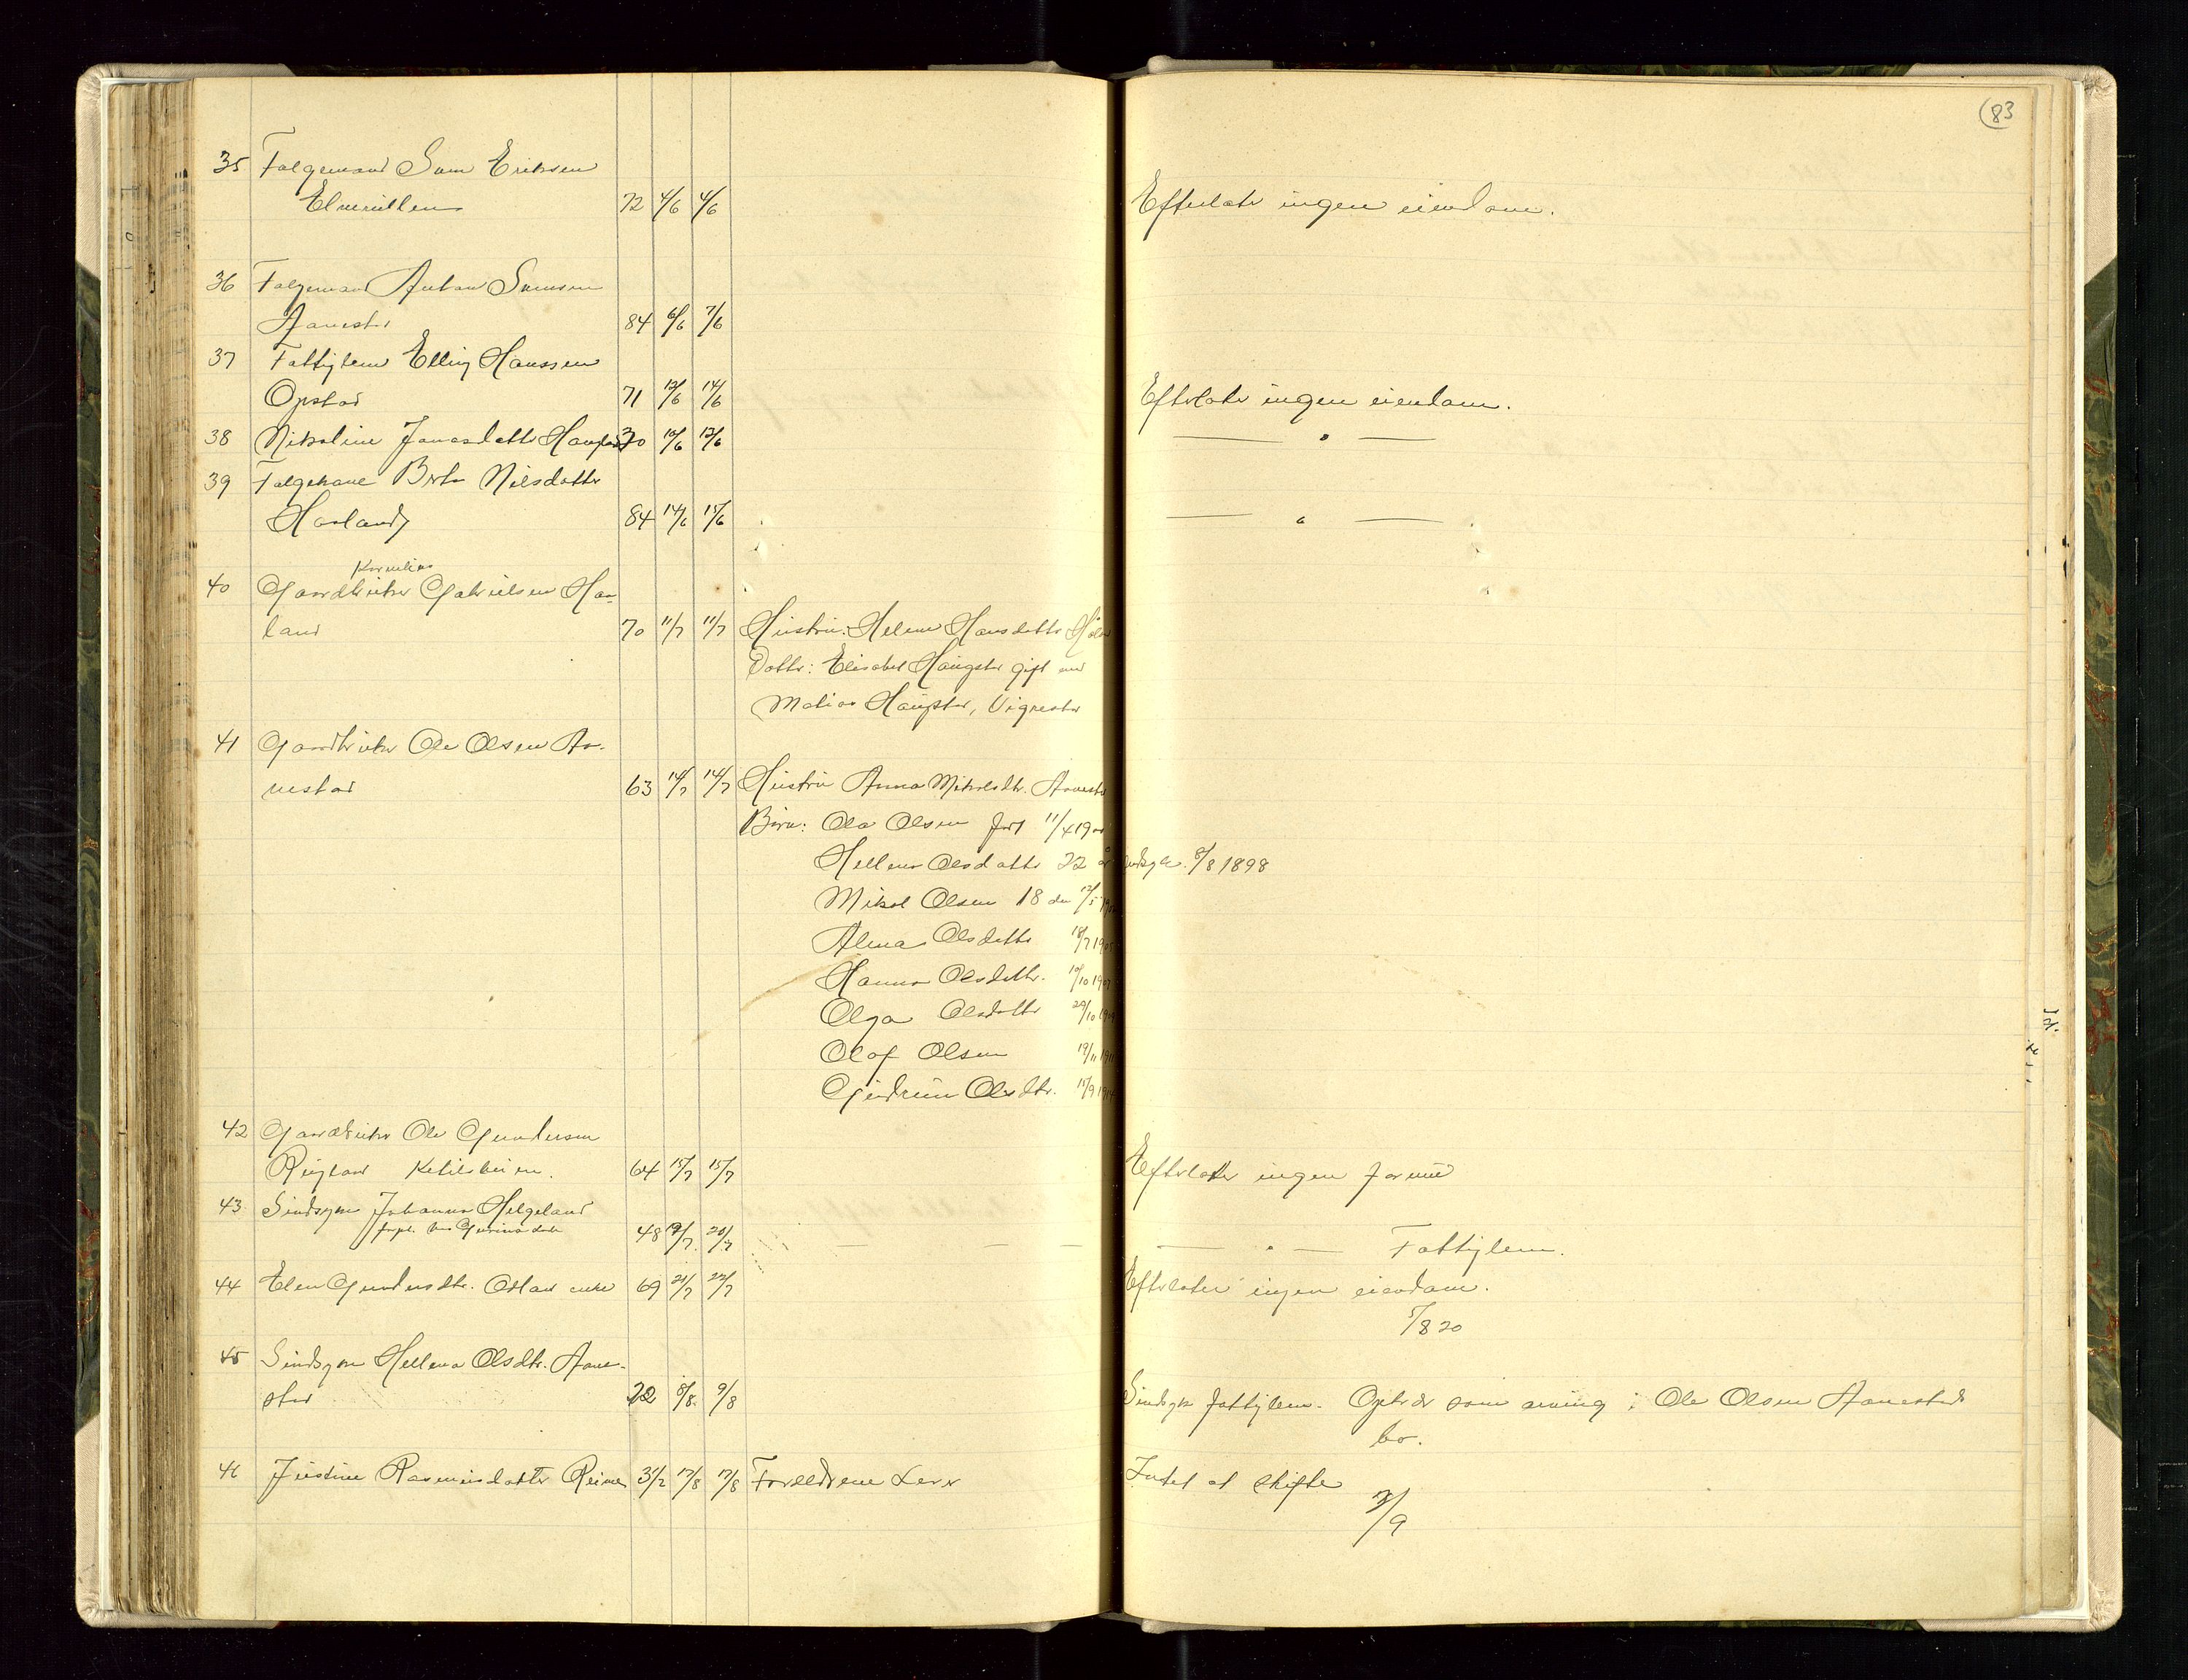 (83
35 Folgemand Sven Eriksen
72 4/6 4/6 Efterlater ingen eiendom.
36 Folgemand Anton
Aanestad 84 6/6 7/6
37 Fattiglem Elling Hanssen
Opstad 71 12/6 14/6 Efterlater ingen eiendom.
38 Nikoline Jonasdatter 70 10/6 12/6 — " —
39 Folgekone Berta Nilsdatter
Haaland 84 14/6 15/6 — " —
Kornelius
40 Gaardbruker Gabrielsen Haa-
land 70 11/7 11/7 Hustru: Helene Hansdatter
Datter: Elisabet Haugstad gift med
Matias Haugstad, Vigrestad
41 Gaardbruker Ole Olsen Aa-
nestad 63 14/7 14/7 Hustru Anna Mikalsdtr. Aanestad
Børn: Ole Olsen født 11/4 19
Hellena Olsdatter 22 år sindsyk. 8/8 1898
Mikal Olsen 18 den 12/5
Alma Olsdatter 18/7 1905
Hanna Olsdatter. 10/10 1907
Olga Olsdatter 29/10 1909
Olaf Olsen 19/11 1911
Gudrun Olsdtr. 15/9 1914
42 Gaardbruker Ole Gundersen
64 15/7 15/7 Efterlater ingen formue
43 Sindsyke Johanna Helgeland
48 19/7 20/7 — " — Fattiglem.
44 Elen Gundersdtr. Odland enke 69 21/7 22/7 Efterlater ingen eiendom.
5/8 20
45 Sindsyke Hellena Olsdtr. Aane-
stad 22 8/8 9/8 Sindsyk fattiglem. Optrær som arving i Ole Olsen Aanestads
bo.
46 Justine Rasmusdatter Reime 3 1/2 17/8 17/8 Forældrene Lever Intet at skifte
7/9